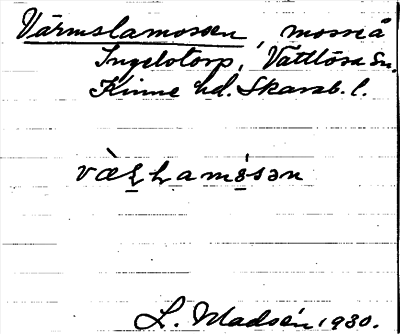 Värmslamossen, mosse å
Ingelstorp, Vättlösa sn.
Kinne hd. Skarab. l.
L. Madsén 1930.